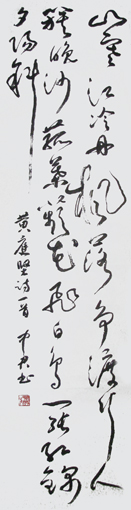 山寒江冷丹楓落爭渡行人
簇晚沙菰葉蘋花飛白鳥一張紅錦
夕陽斜
黃庭堅詩一首